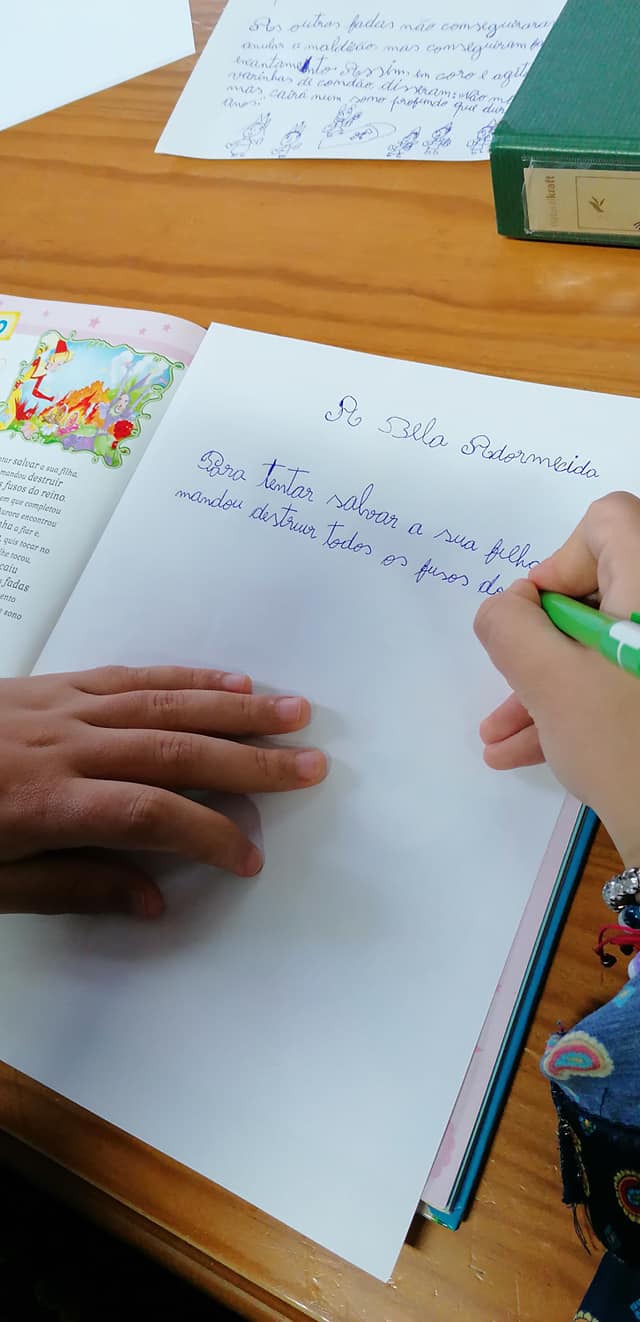 As outras fadas não conseguiram
anular a maldição mas conseguiram
encantamento. Assim em coro e
varinhas de condão, disseram: não
mas cairá num sono profundo que
anos:
kraft
A Bela Adormecida
Para tentar salvar a sua filha
mandou destruir todos os fusos do
salvar a sua filha,
mandou destruir
fusos do reino.
em que completou
encontrou
a fiar e,
quis tocar no
lhe tocou,
caiu
fadas
sono